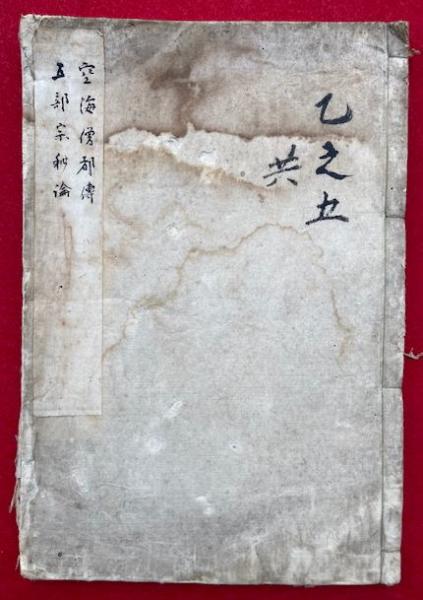 乙之五
共
空海僧都傳
五部宗秘論